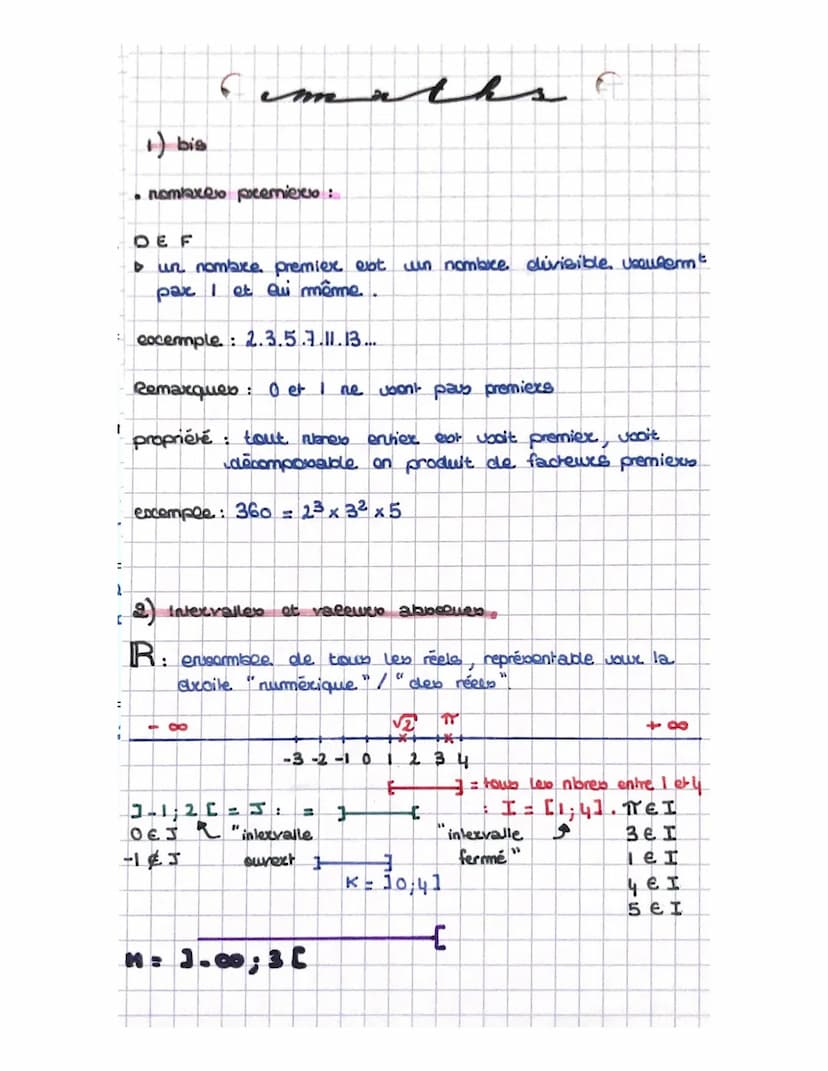 maths
1) bis
• nombres premiers :
DEF
▷ un nombre premier est un nombre divisible seulemt
par 1 et lui même.
exemple : 2.3.5.7.11.13...
Remarques : 0 et 1 ne sont pas premiers
propriété : tout nbres entier est soit premier, soit
décomposable en produit de facteurs premiers
exemple : 360 = 2³ x 3² x 5
2) Intervalles et valeurs absolues.
ℝ : ensemble de tous les réels, représentable sur la
droite "numérique" / "des réels".
- ∞ √2 π + ∞
-3 -2 -1 0 1 2 3 4
[ ] = tous les nbres entre 1 et 4
]-1;2[ = J : = ] [ : I = [1;4]. π ∈ I
0 ∈ J "intervalle "intervalle 3 ∈ I
-1 ∉ J ouvert ] ] fermé" 1 ∈ I
K = ]0;4] 4 ∈ I
5 ∈ I
[
M = ]-∞;3[